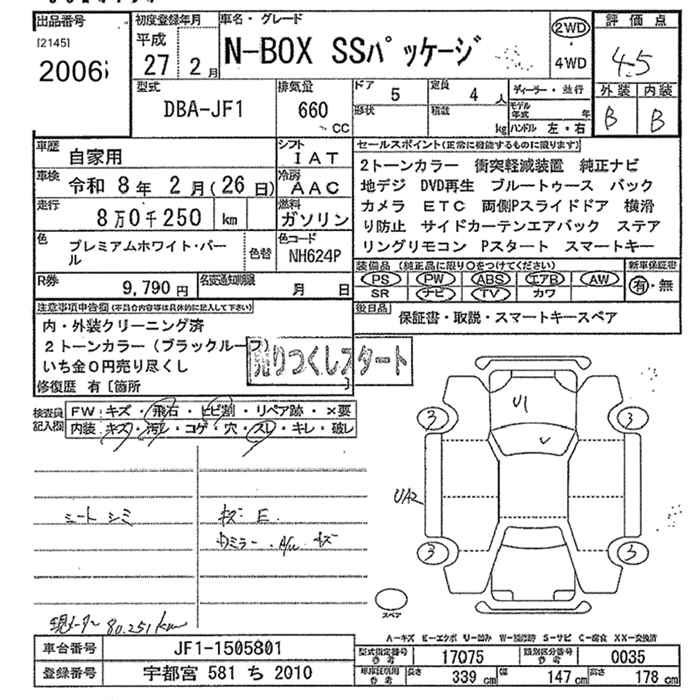 出品番号 初度登録年月 車名・グレード 評価点
[2145]
2006
平成
27年 2月
N-BOX SSパッケージ
2WD
4WD
4.5
型式
DBA-JF1
排気量
660 cc
ドア 5
定員 4人
形状
積載 kg
ディーラー・並行
モデル年式 年
ハンドル 左・右
外装 内装
B B
車歴 自家用
シフト IAT
車検 令和 8年 2月(26日)
冷房 AAC
走行 8万0千250 km
燃料 ガソリン
色 プレミアムホワイト・パール
色替
色コード NH624P
R券 9,790円
名変通知期限 月 日
セールスポイント(正常に機能するものに限ります)
2トーンカラー 衝突軽減装置 純正ナビ
地デジ DVD再生 ブルートゥース バック
カメラ ETC 両側Pスライドドア 横滑
り防止 サイドカーテンエアバック ステア
リングリモコン Pスタート スマートキー
装備品 (純正品に限り○をつけてください) 新車保証書
PS PW ABS エアB AW 有・無
SR ナビ TV カワ
後日品 保証書・取説・スマートキースペア
注意事項申告欄(不具合内容等は具体的に記入して下さい)
内・外装クリーニング済
2トーンカラー(ブラックルーフ)
いち金0円売り尽くし
修復歴 有[箇所 ]
売りつくしスタート
検査員記入欄
FW: キズ・飛石・ヒビ割・リペア跡・×要
内装: キズ・汚レ・コゲ・穴・スレ・キレ・破レ
シート シミ
キズ E
カメラー・A/W キズ
現メーター 80.251km
U1
UA2
3 3
3 3
スペア
A-キズ E-エクボ U-凹み W-補修跡 S-サビ C-腐食 XX-交換済
車台番号 JF1-1505801
型式指定番号 参考 17075
類別区分番号 参考 0035
登録番号 宇都宮 581 ち 2010
車庫証明用 参考 長さ 339cm 幅 147cm 高さ 178cm